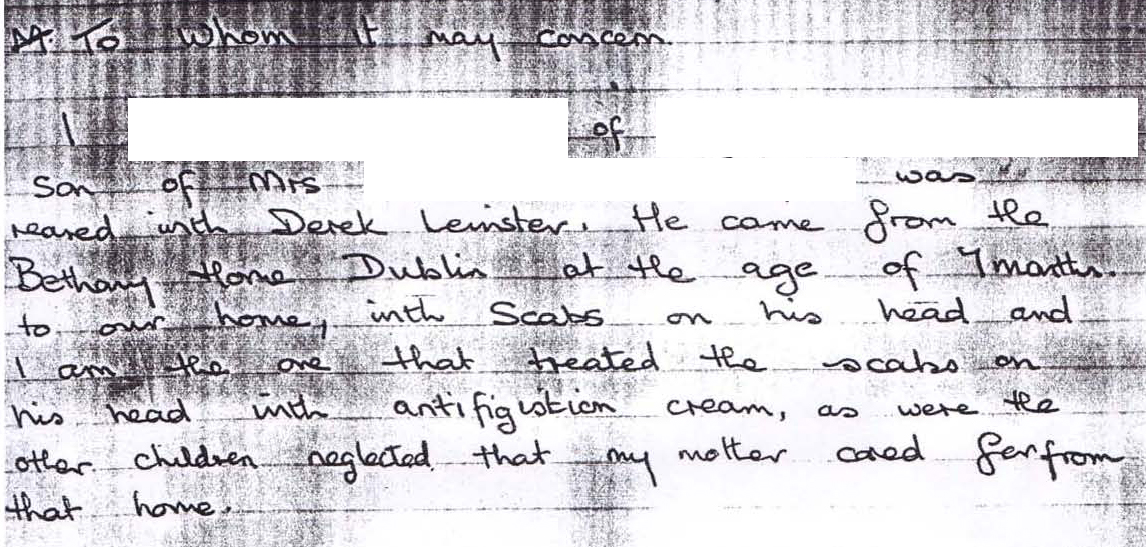 To Whom it may concern.
I of
Son of Mrs was
reared with Derek Leinster. He came from the
Bethany Home Dublin at the age of 7 months.
to our home, with Scabs on his head and
I am the one that treated the scabs on
his head with antifigistion cream, as were the
other children neglected that my mother cared for from
that home.